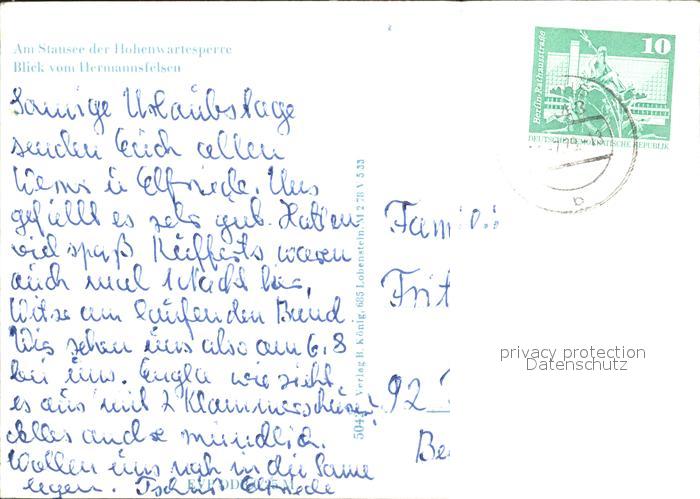 Am Stausee der Hohenwartesperre
Blick vom Hermannsfelsen
Sonnige Urlaubstage
senden Euch allen
Werner u Elfriede. Uns
gefällt es sehr gut. Hatten
viel spaß Küfferts waren
auch mal 1 Nacht hier,
Witze am laufenden Band.
Wir sehen uns also am 6.8
bei uns.
es aus mit 2
Alles andre mündlich.
Wollen uns nah in die Sonne
legen. Tschüs Elfriede
5043 Verlag B. König, 685 Lobenstein, M 2 78 V 5 33
Berlin-Rathausstraße
10
DEUTSCHE DEMOKRATISCHE REPUBLIK
Famili
Frit
92
Be
privacy protection
Datenschutz